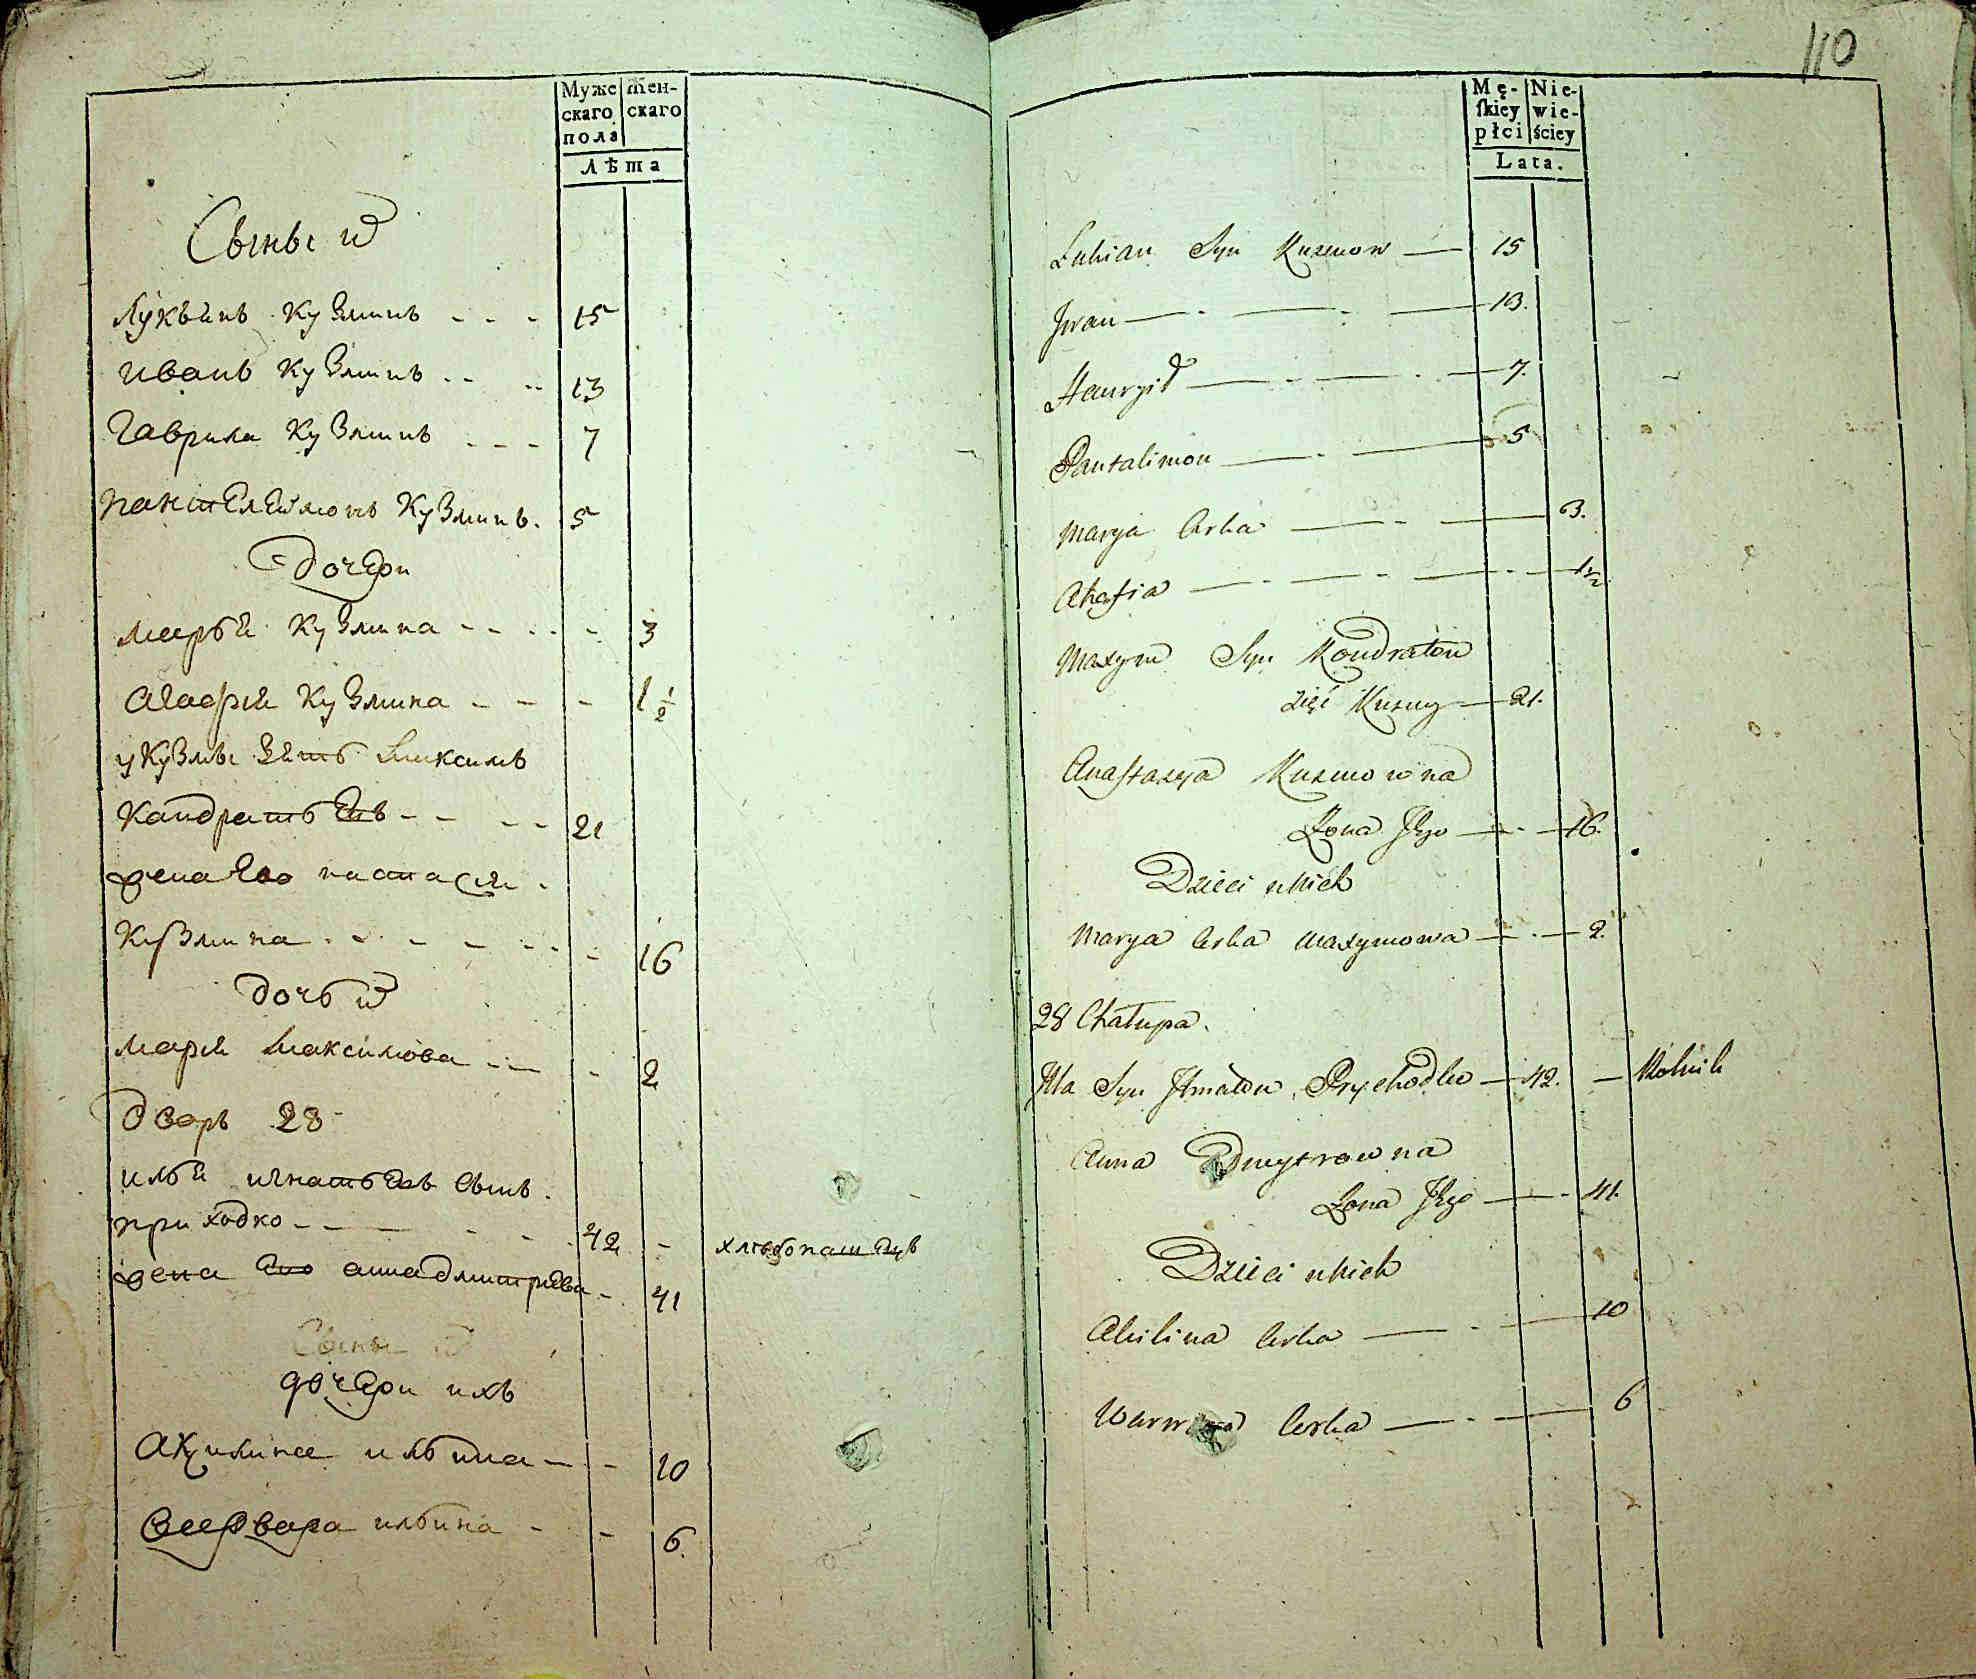 Муже скаго пола
Женскаго
Лѣта
Сыны ихъ
Лукьянъ Кузминъ - - - 15
Иванъ Кузминъ - - - 13
Гаврила Кузминъ - - - 7
Пантелеймонъ Кузминъ. 5
дочери
Марья Кузмина - - - - 3
Агафия Кузмина - - - 1 1/2
у Кузмы зять Максимъ
Кандратьевъ - - - - 21
жена Его настасия.
Кузмина - - - - - 16
дочь их
Мария Максимова - - - 2
дворъ 28
илья игнатьевъ сынъ.
приходко - - - - 42 - хлебопашецъ
жена Его анна дмитриева - 41
Сыны их
дочери ихъ
Акулина ильина - - 10
Варвара ильина - - 6.
110
Mę-skiey płci
Nie-wie-ściey
Lata.
Lukian Syn Kuzmow — 15
Jwan — - — - — 13.
Hawryło — - — - — 7.
Pantalimon — - — 5
Marya Corka — - — 3.
Ahafia — - — - — - — 1 1/2
Maxym Syn Kondratow
zięć Kuzmy — 21.
Anastazya Kuzmowna
Żona Jego — - — 16.
Dzieci u Nich
Marya Corka Maxymowa — - — 2.
28 Chałupa.
Illa Syn Hnatow Prychodko — 42. — Rolnik
Anna Dmytrowna
Żona Jego — - 41.
Dzieci u Nich
Akilina Corka — - — 10
Corka — - — 6